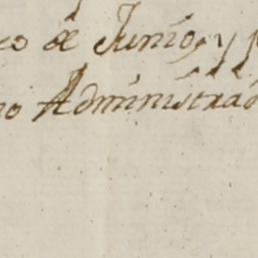 co de Junio, y p
no Administrad